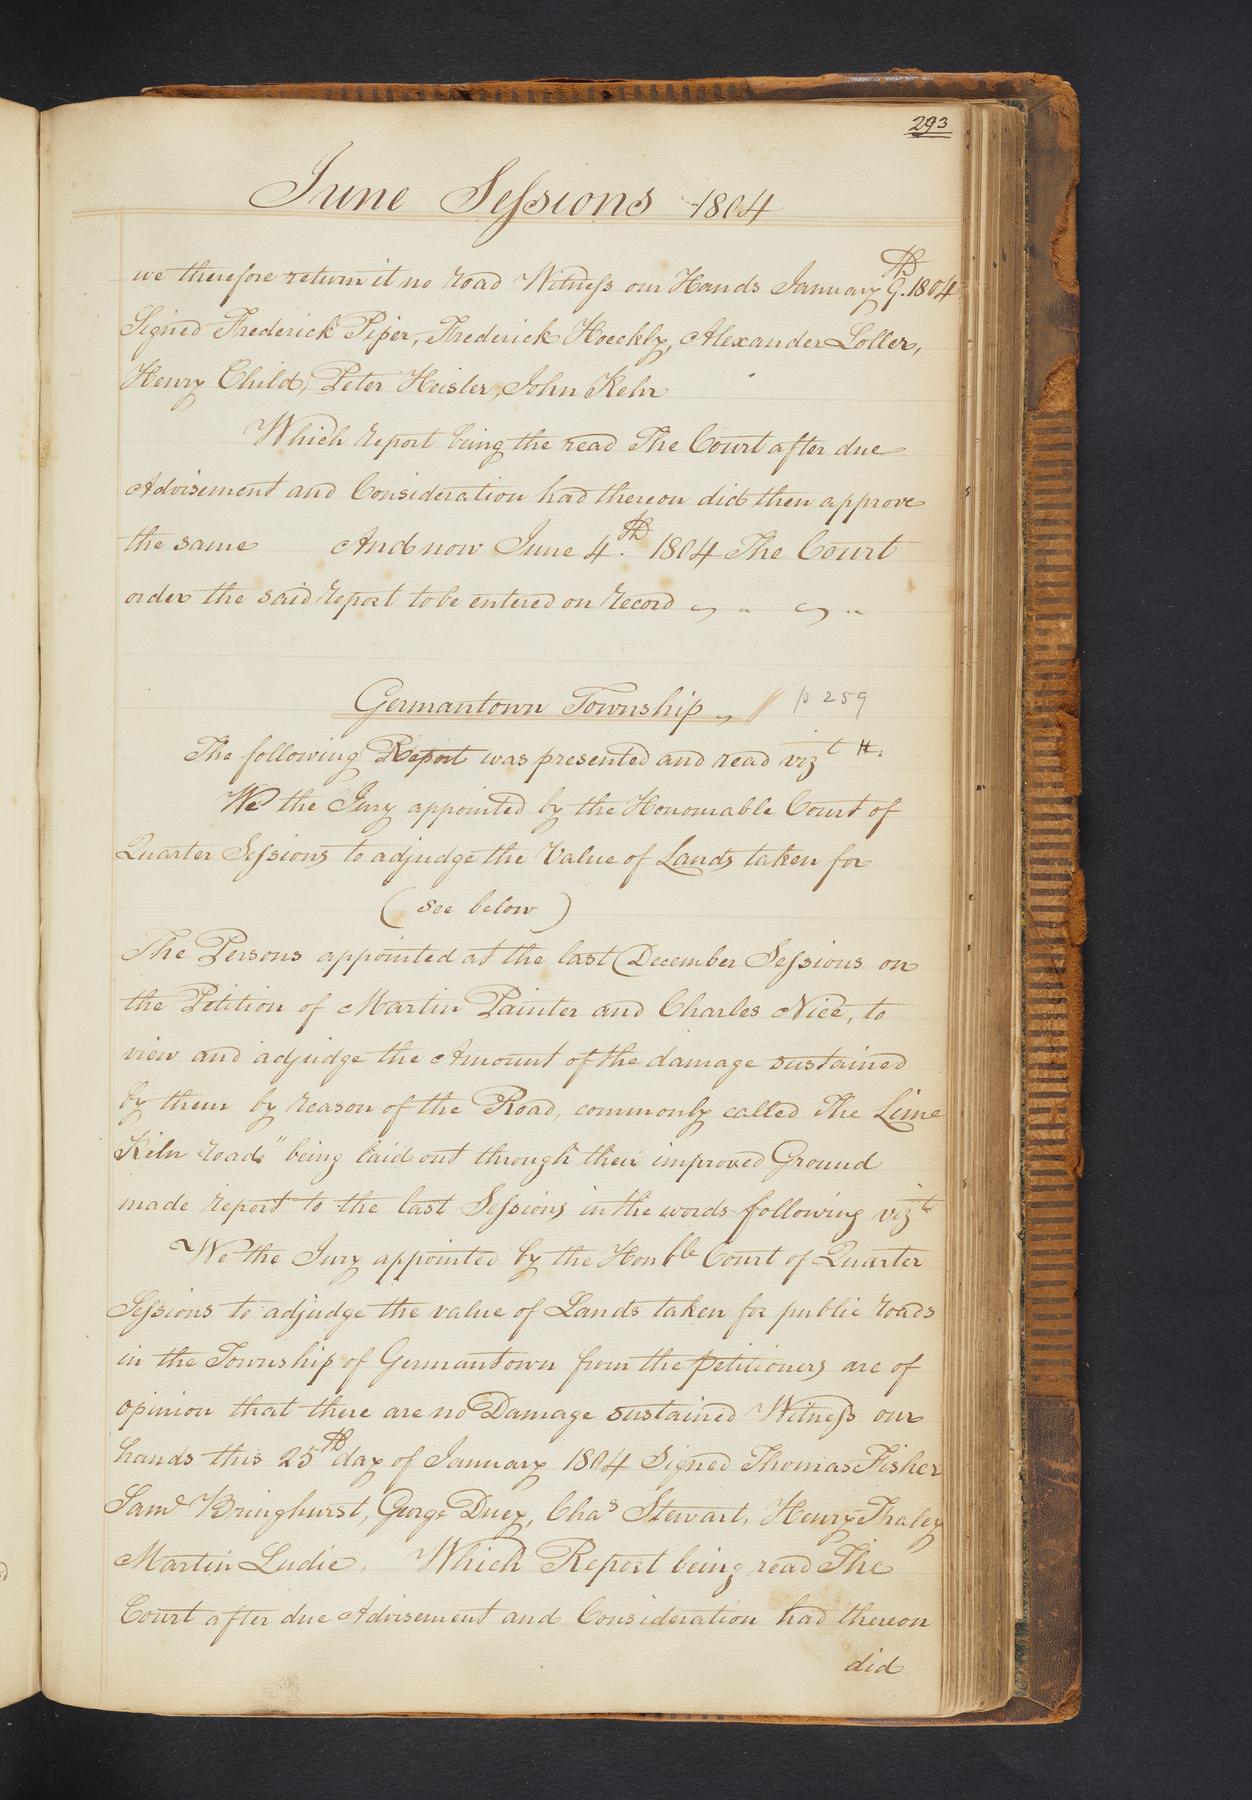 293
June Sessions 1804
we therefore return it no road Witness our Hands January 9th. 1804
Signed Frederick Piper, Frederick Hoeckly, Alexander Loller,
Henry Child, Peter Heisler, John Kehr
Which report being the read The Court after due
Advisement and Consideration had thereon did then approve
the same And now June 4th. 1804 The Court
order the said report to be entered on record
Germantown Township p 259
The following Report was presented and read vizt
We the Jury appointed by the Honourable Court of
Quarter Sessions to adjudge the Value of Lands taken for
( see below )
The Persons appointed at the last December Sessions on
the Petition of Martin Painter and Charles Nice, to
view and adjudge the Amount of the damage sustained
by them by reason of the Road, commonly called The Lime
Kiln road," being laid out through their improved Ground
made report to the last Sessions in the words following vizt
We the Jury appointed by the Honble Court of Quarter
Sessions to adjudge the value of Lands taken for public roads
in the Township of Germantown from the petitioners are of
opinion that there are no Damage sustained Witness our
hands this 25th day of January 1804 Signed Thomas Fisher
Saml Bringhurst, George Duey, Chas Stewart, Henry Fraley
Martin Ludie. Which Report being read The
Court after due Advisement and Consideration had thereon
did